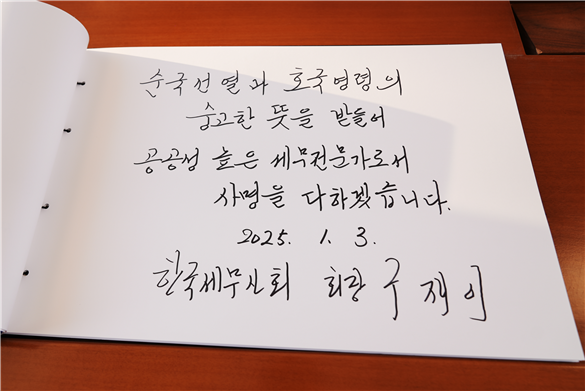 순국선열과 호국영령의
숭고한 뜻을 받들어
공공성 높은 세무전문가로서
사명을 다하겠습니다.
2025. 1. 3.
한국세무사회 회장 구재이